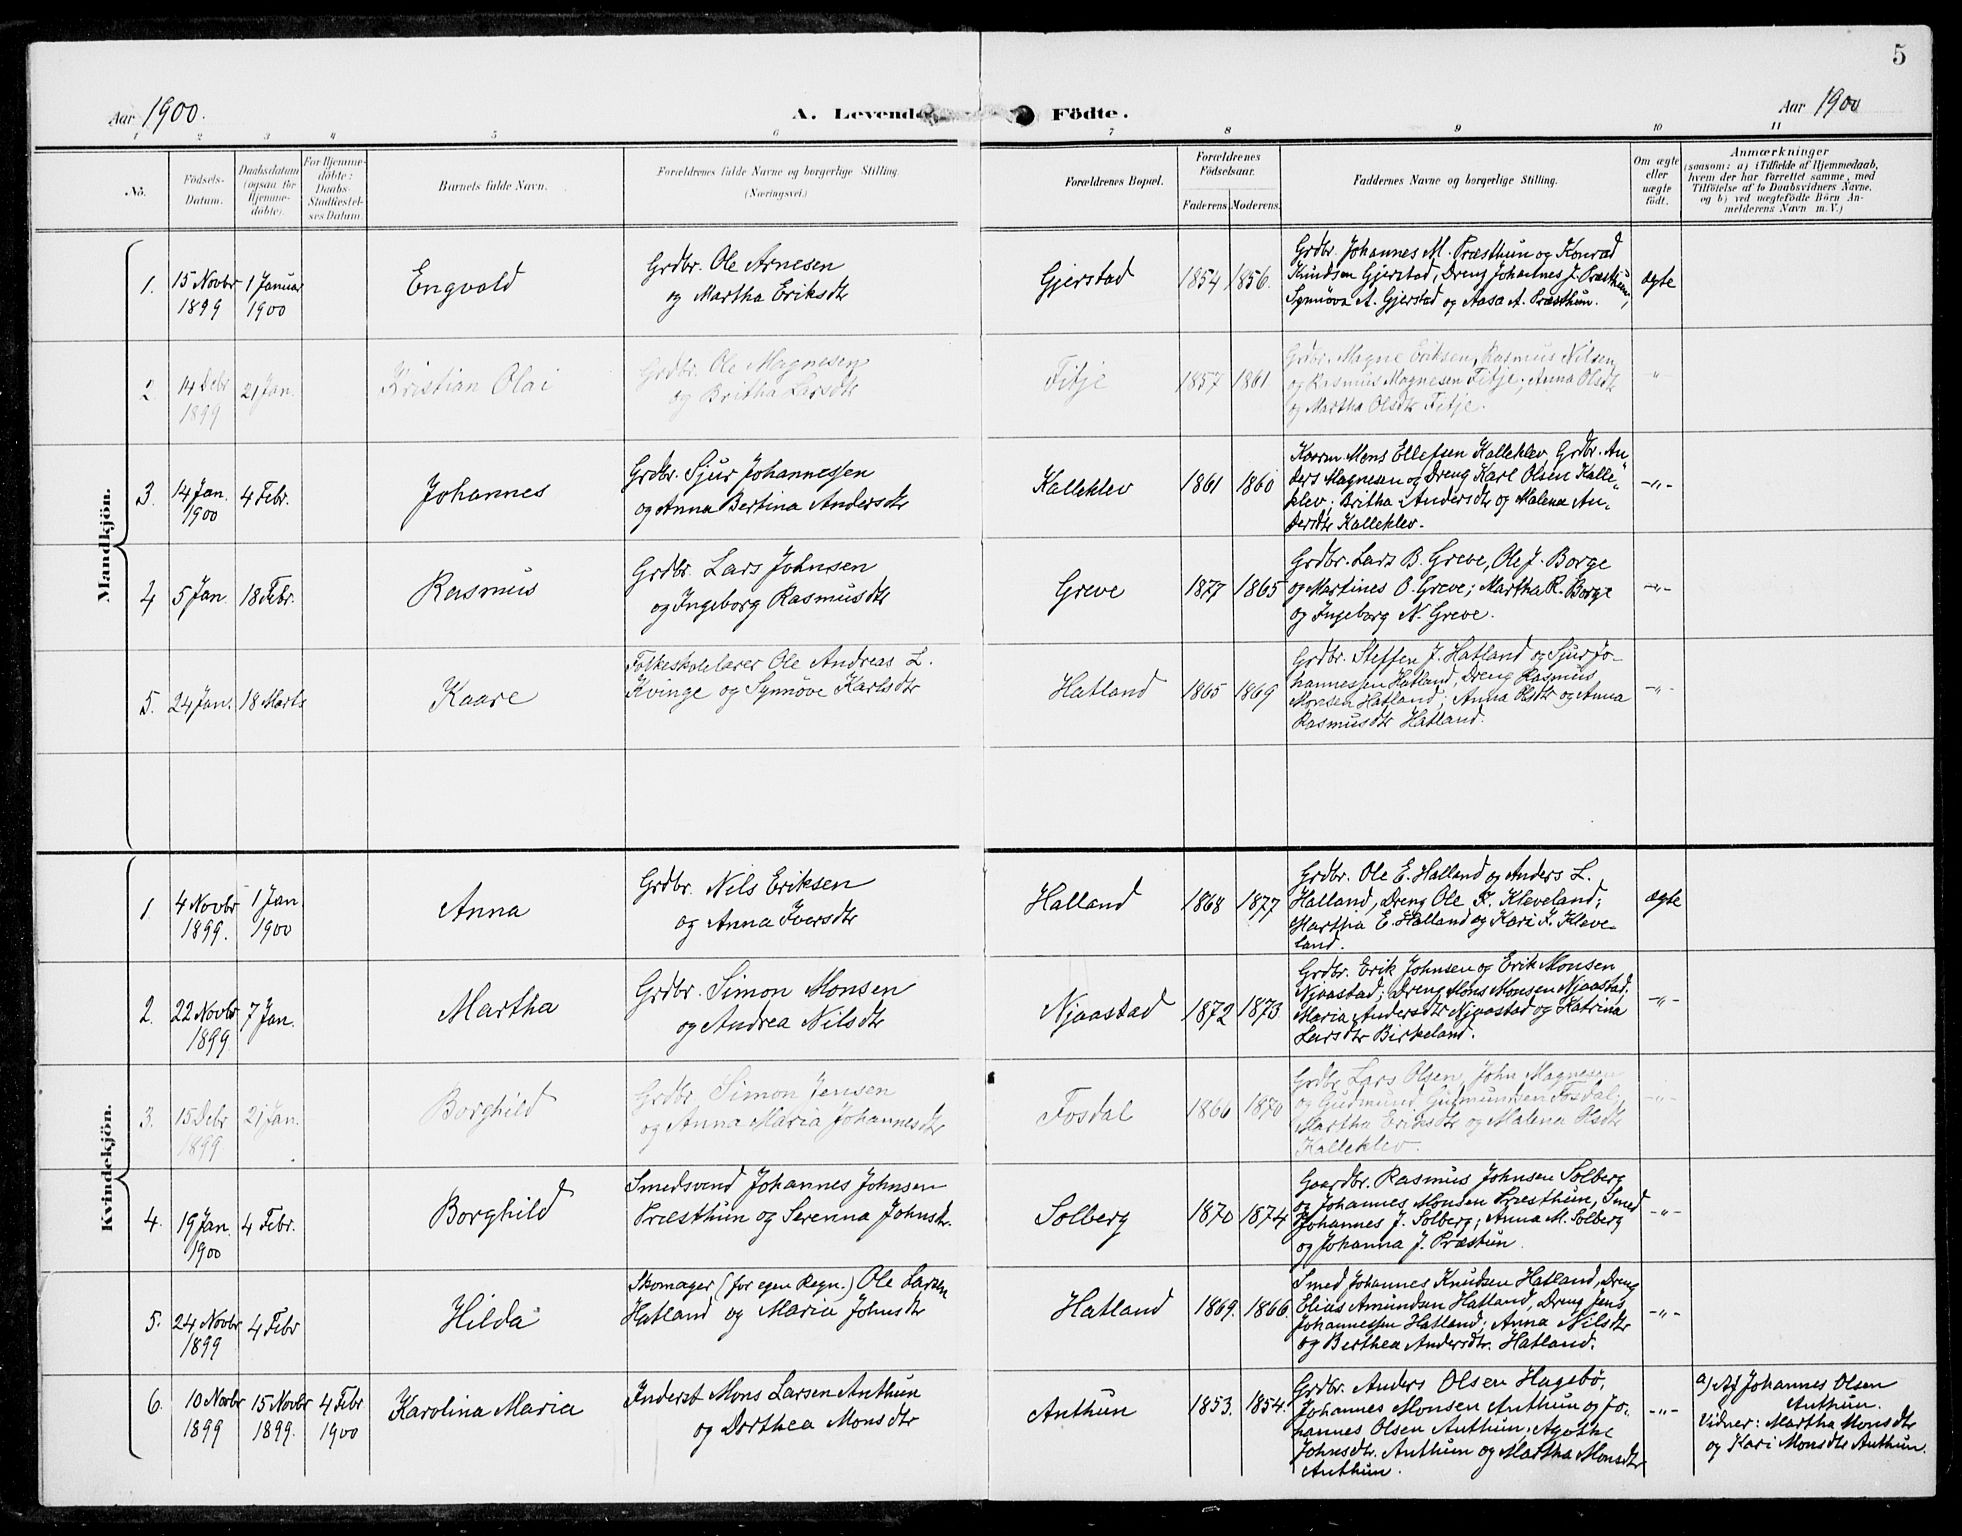 5
Aar 1900.
A. Levende Födte.
Aar 1900
1 2 3 4 5 6 7 8 9 10 11
No.
Födsels-
Datum.
Daabsdatum
(ogsaa for
Hjemme-
döbte).
For Hjemme-
döbte:
Daabs-
Stadfæstel-
ses Datum.
Barnets fulde Navn.
Forældrenes fulde Navne og borgerlige Stilling.
(Næringsvei.)
Forældrenes Bopæl.
Forældrenes
Födselsaar.
Faderens. Moderens.
Faddernes Navne og borgerlige Stilling.
Om ægte
eller
uægte
födt.
Anmærkninger
(saasom: a) i Tilfælde af Hjemmedaab,
hvem der har forrettet samme, med
Tilföielse af to Daabsvidners Navne,
og b) ved uægtefödte Börn An-
melderens Navn m. V.)
Mandkjön.
1. 15 Novbr
1899
1 Januar
1900
Engvald
Grdbr. Ole Arnesen
og Martha Eriksdtr
Gjerstad
1854 1856.
Grdbr. Johannes M. Præsthun og Konrad
Knudsen Gjerstad, Dreng Johannes J. Præsthun,
Synnöva A. Gjerstad og Aasa A. Præsthun.
ægte
2. 14 Debr
1899
21 Jan.
Kristian Olai
Grdbr. Ole Magnesen
og Britha Larsdtr
Fitje
1857 1861
Grdbr. Magne Eriksen, Rasmus Nilsen
og Rasmus Magnesen Fitje; Anna Olsdtr
og Martha Olsdtr Fitje.
"
3. 14 Jan.
1900
4 Febr.
Johannes
Grdbr. Sjur Johannessen
og Anna Bertina Andersdtr
Kalleklev
1861 1860
Kaarm. Mons Ellefsen Kalleklev, Grdbr. An-
ders Magnesen og Dreng Karl Olsen Kalle-
klev; Britha Andersdtr og Malena An-
dersdtr Kalleklev.
-"-
4 5 Jan. 18 Febr.
Rasmus
Grdbr. Lars Johnsen
og Ingeborg Rasmusdtr
Greve
1877 1865
Grdbr. Lars B. Greve, Ole J. Borge
og Martines O. Greve; Martha R. Borge
og Ingeborg N. Greve.
-"-
5. 24 Jan. 18 Marts
Kaare
Folkeskolelærer Ole Andreas L.
Kvinge og Synnöve Karlsdtr
Hatland
1865 1869
Grdbr. Steffen J. Hatland og Sjur Jo-
hannessen Hatland, Dreng Rasmus
Monsen Hatland; Anna Olsdtr og Anna
Rasmusdtr Hatland.
-"-
Kvindekjön.
1. 4 Novbr
1899.
1 Jan
1900
Anna
Grdbr. Nils Eriksen
og Anna Iversdtr
Halland
1868 1877
Grdbr. Ole E. Halland og Anders L.
Halland, Dreng Ole K. Kleveland;
Martha E. Halland og Kari I. Kleve-
land.
ægte
2. 22 Novbr
1899.
7 Jan.
Martha
Grdbr. Simon Monsen
og Andrea Nilsdtr
Njaastad
1872 1873.
Grdbr. Erik Johnsen og Erik Monsen
Njaastad; Dreng Mons Monsen Njaastad;
Maria Andersdtr Njaastad og Katrina
Larsdtr Birkeland.
-"-
3. 15 Debr
1899
21 Jan.
Borghild
Grdbr. Simon Jensen
og Anna Maria Johannesdtr
Fosdal
1866 1870
Grdbr Lars Olsen, John Magnesen
og Gudmund Gudmundsen Fosdal;
Martha Eriksdtr og Malena Olsdtr
Kalleklev.
-"-
4. 19 Jan.
1900
4 Febr.
Borghild
Smedsvend Johannes Johnsen
Præsthun og Serenna Johnsdtr.
Solberg
1870 1874
Gaardbr. Rasmus Johnsen Solberg
og Johannes Monsen Præsthun, Smed
Johannes J. Solberg; Anna M. Solberg
og Johanna J. Præstun.
-"-
5. 24 Novbr
1899
4 Febr
Hilda
Skomager (for egen Regn.) Ole Larsen
Hatland og Maria Johnsdtr
Hatland
1869. 1866.
Smed Johannes Knudsen Hatland, Dreng
Elias Amundsen Hatland, Dreng Jens
Johannessen Hatland; Anna Nilsdtr
og Berthea Andersdtr. Hatland.
-"-
6. 10 Novbr
1899
15 Novbr
1899.
4 Febr
1900
Karolina Maria
Inderst Mons Larsen Anthun
og Dorthea Monsdtr
Anthun
1853. 1854.
Grdbr. Anders Olsen Hagebö,
Johannes Monsen Anthun og Jo-
hannes Olsen Anthun; Agothe
Johnsdtr. Anthun og Martha Monsdtr
Anthun.
-"-
a) Af Johannes Olsen
Anthun.
Vidner: Martha Monsdtr
og Kari Monsdtr Anthun.